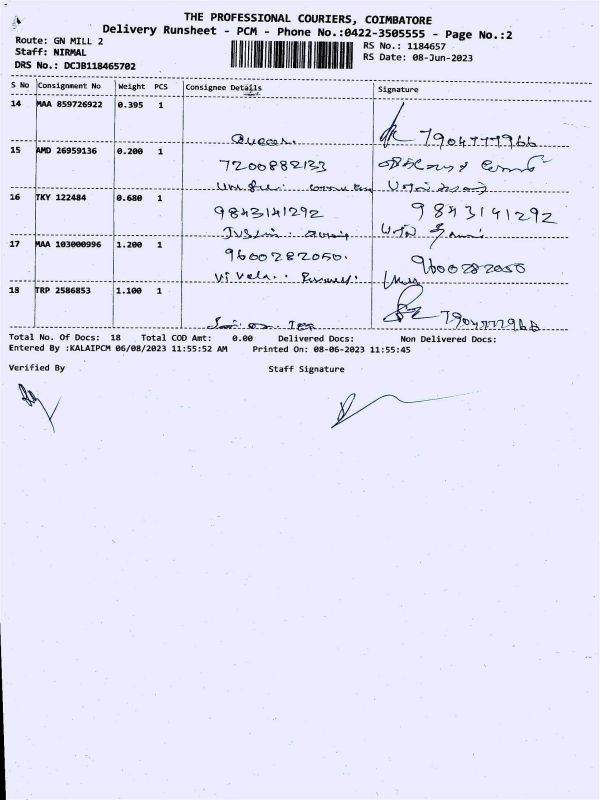 THE PROFESSIONAL COURIERS, COIMBATORE
Delivery Runsheet - PCM - Phone No.:0422-3505555 - Page No.:2
Route: GN MILL 2
RS No.: 1184657
Staff: NIRMAL
RS Date: 08-Jun-2023
DRS No.: DCJB118465702
S No Consignment No Weight PCS Consignee Details Signature
14 MAA 859726922 0.395 1
7904777966
15 AMD 26959136 0.200 1
7200882133
16 TKY 122484 0.680 1
9843141292 9843141292
17 MAA 103000996 1.200 1
9600282050. 9600282050
18 TRP 2586853 1.100 1
7904777966
Total No. Of Docs: 18 Total COD Amt: 0.00 Delivered Docs: Non Delivered Docs:
Entered By :KALAIPCM 06/08/2023 11:55:52 AM Printed On: 08-06-2023 11:55:45
Verified By Staff Signature